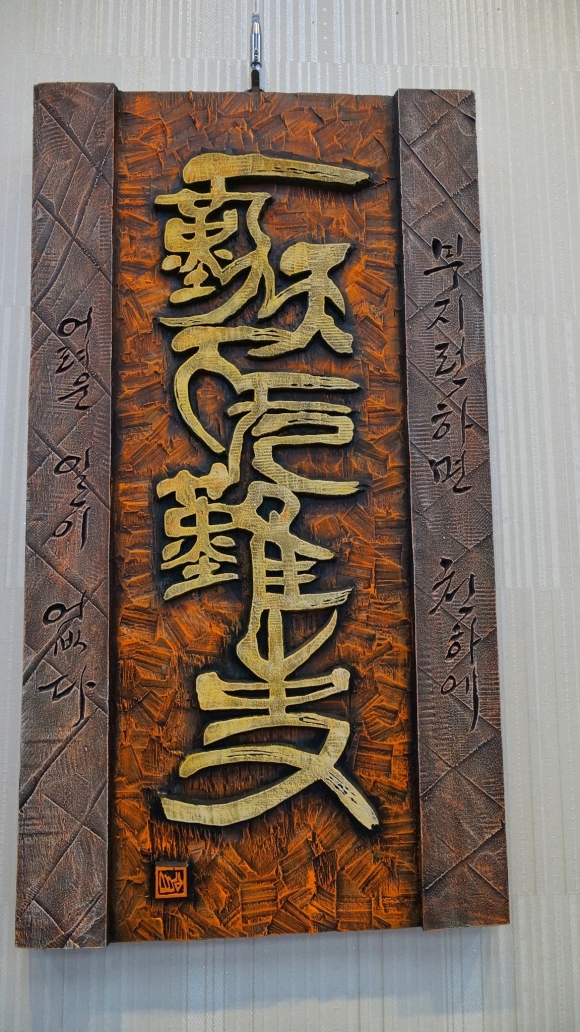 一勤天下无難事
부지런하면 천하에
어려운 일이 없다